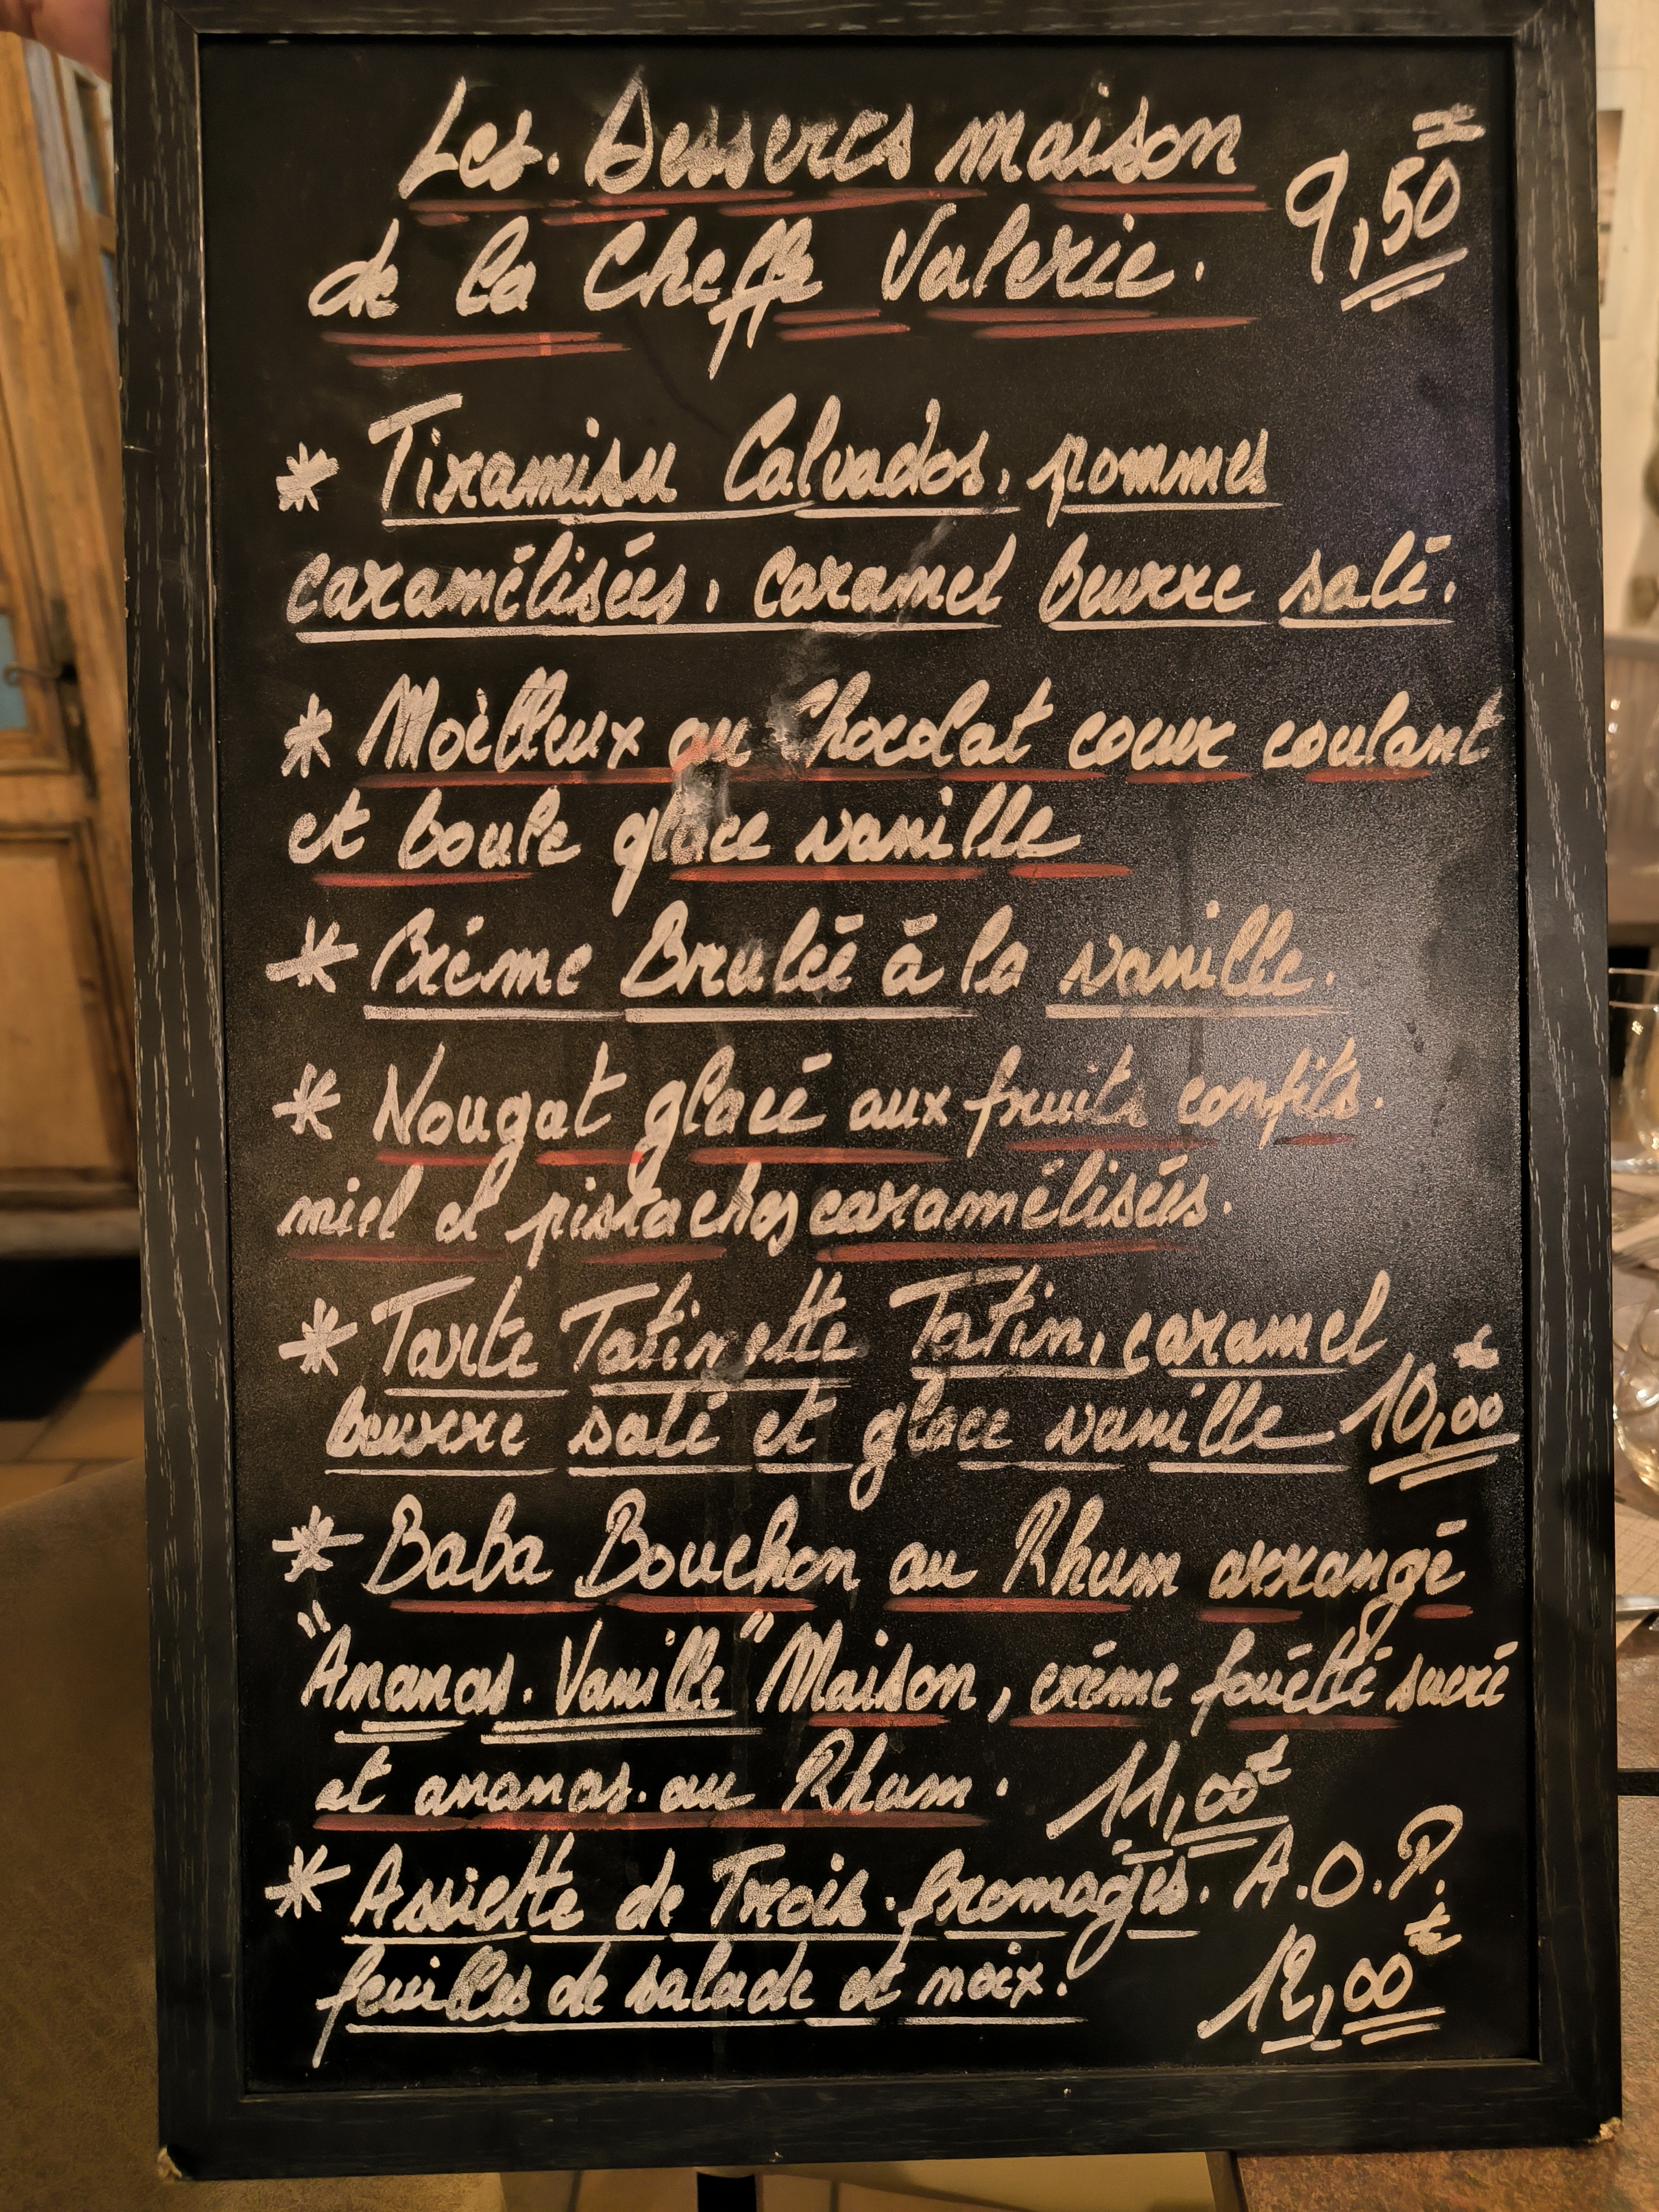 Les Desserts maison
9,50€
de la Cheffe Valerie.
* Tiramisu Calvados, pommes
caramélisées, caramel beurre salé.
* Moèlleux au Chocolat coeur coulant
et boule glace vanille
* Crème Brulée à la vanille.
* Nougat glacé aux fruits confits.
miel et pistaches caramélisées.
* Tarte Tatinette Tatin, caramel
beurre salé et glace vanille 10,00€
* Baba Bouchon au Rhum arrangé
"Ananas. Vanille" Maison, crème fouétté sucré
et ananas. au Rhum. 11,00€
* Assiette de Trois. fromages. A.O.P.
feuilles de salade et noix. 12,00€